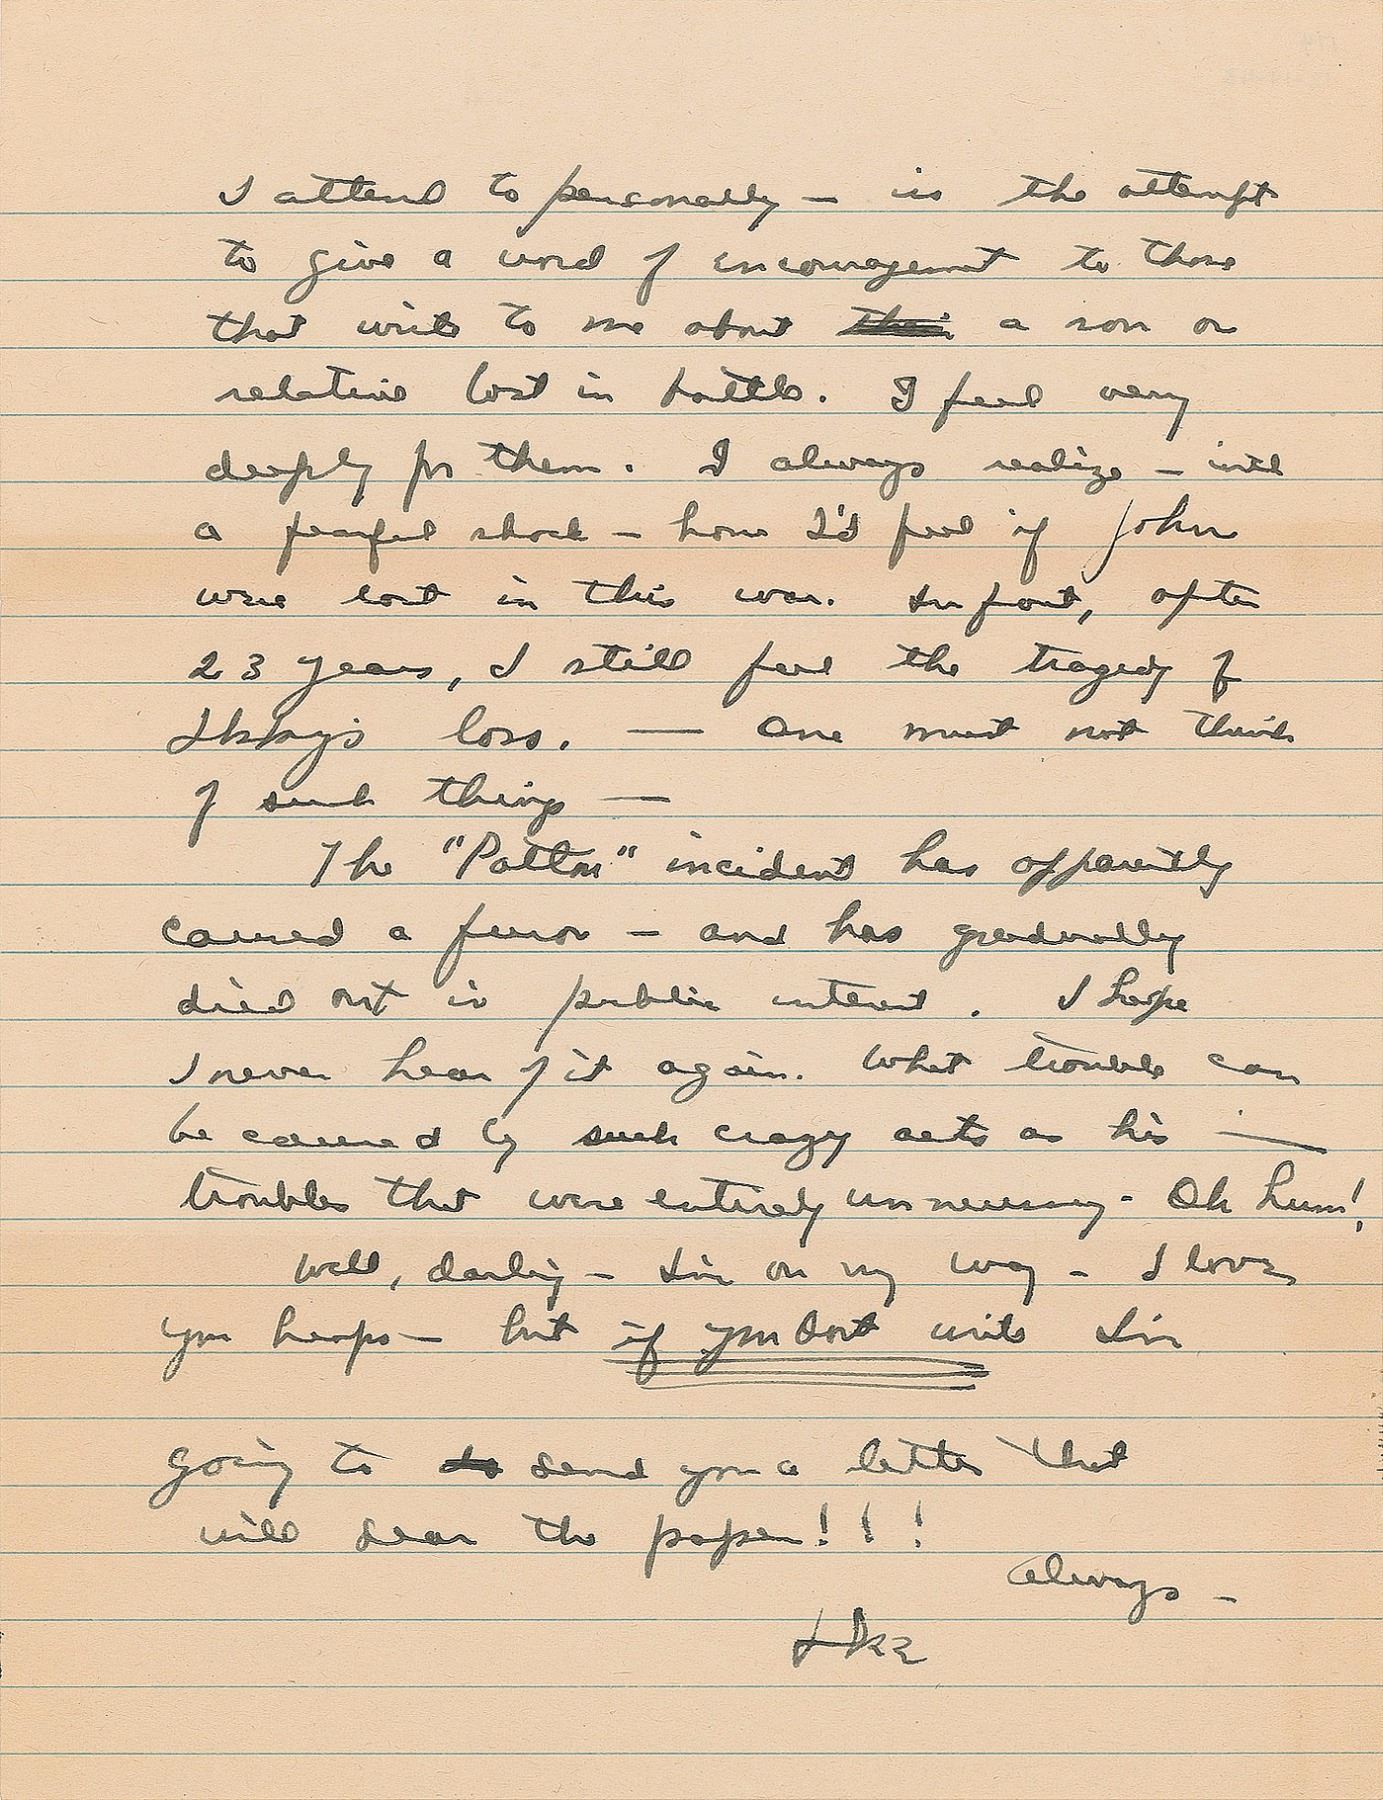 I attend to personally – is the attempt
to give a word of encouragement to those
that write to me about their a son or
relative lost in battle. I feel very
deeply for them. I always realize – with
a fearful shock – how I'd feel if John
were lost in this war. In fact, after
23 years, I still feel the tragedy of
Ikky's loss. — One must not think
of such things —
The "Patton" incident has apparently
caused a furor – and has gradually
died out in public interest. I hope
I never hear of it again. What trouble can
be caused by such crazy acts as his —
troubles that were entirely unnecessary. Oh hum!
Well, darling – I'm on my way – I love
you heaps – but if you don't write I'm
going to send you a letter that
will sear the paper!!!
Always –
Ike